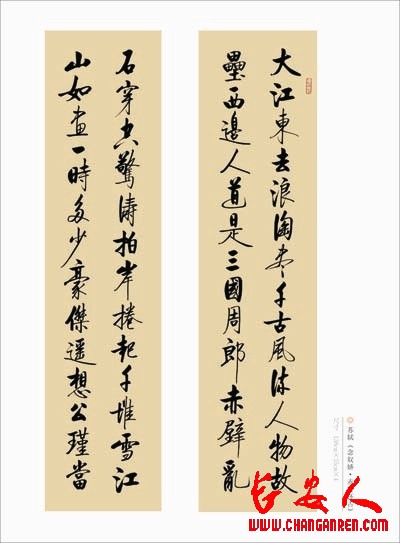 大江東去浪淘盡千古風流人物故
壘西邊人道是三國周郎赤壁亂
石穿空驚濤拍岸捲起千堆雪江
山如畫一時多少豪傑遥想公瑾當
苏轼《念奴娇·
长安人
WWW.CHANGANREN.COM